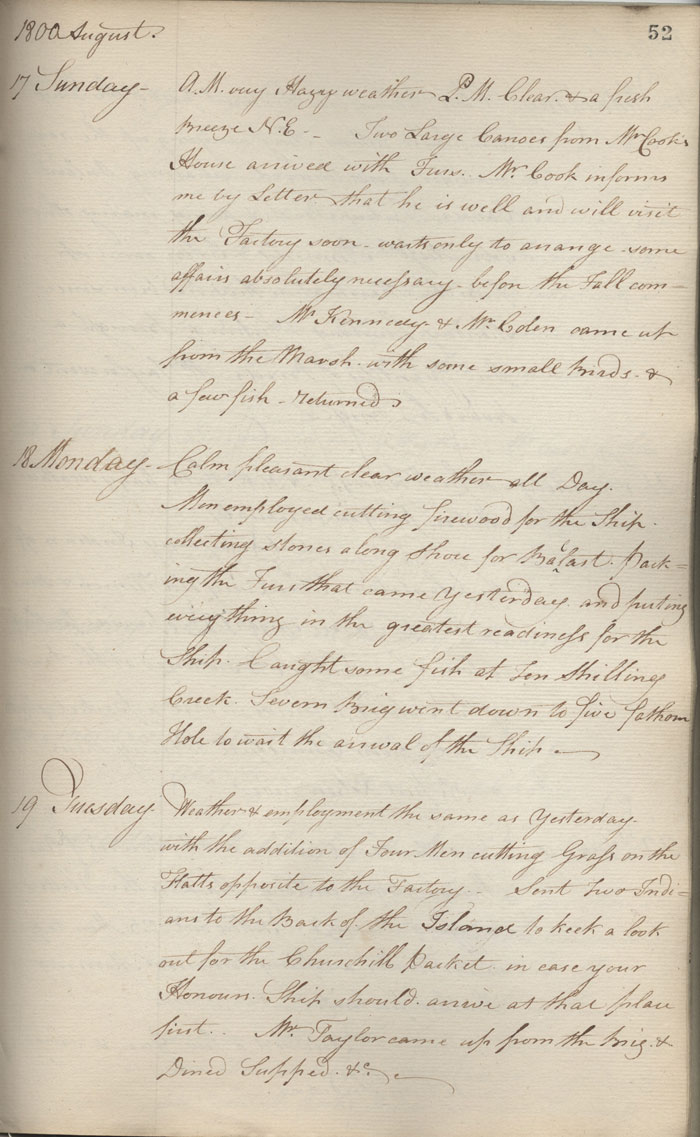 1800 August.
52
17 Sunday - A.M. very Hazy weather P.M. Clear & a fresh
Breeze N.E - Two Large Canoes from Mr Cook's
House arrived with Furs. Mr. Cook informs
me by Letter that he is well and will visit
the Factory soon - waits only to arange some
affairs absolutely necessary - before the Fall com-
mences - Mr Kennedy & Mr. Colen came up
from the Marsh with some small Birds &
a few fish - returned
18 Monday - Calm pleasant clear weather all Day.
Men employed cutting firewood for the Ship.
collecting stones along shore for Balast. Pack=
ing the Furs that came Yesterday and puting
every thing in the greatest readiness for the
Ship. Caught some fish at Ten Shilling
Creek. Severn Brig went down to five fathom
Hole to wait the arrival of the Ship
19 Tuesday. Weather & employment the same as Yesterday
with the addition of Four Men cutting Grass on the
Flatts opposite to the Factory - Sent two Indi=
ans to the Back of the Island to keek a look
out for the Churchill Packet in case your
Honours Ship should arrive at that place
first. Mr. Taylor came up from the Brig &
Dined Supped &c.